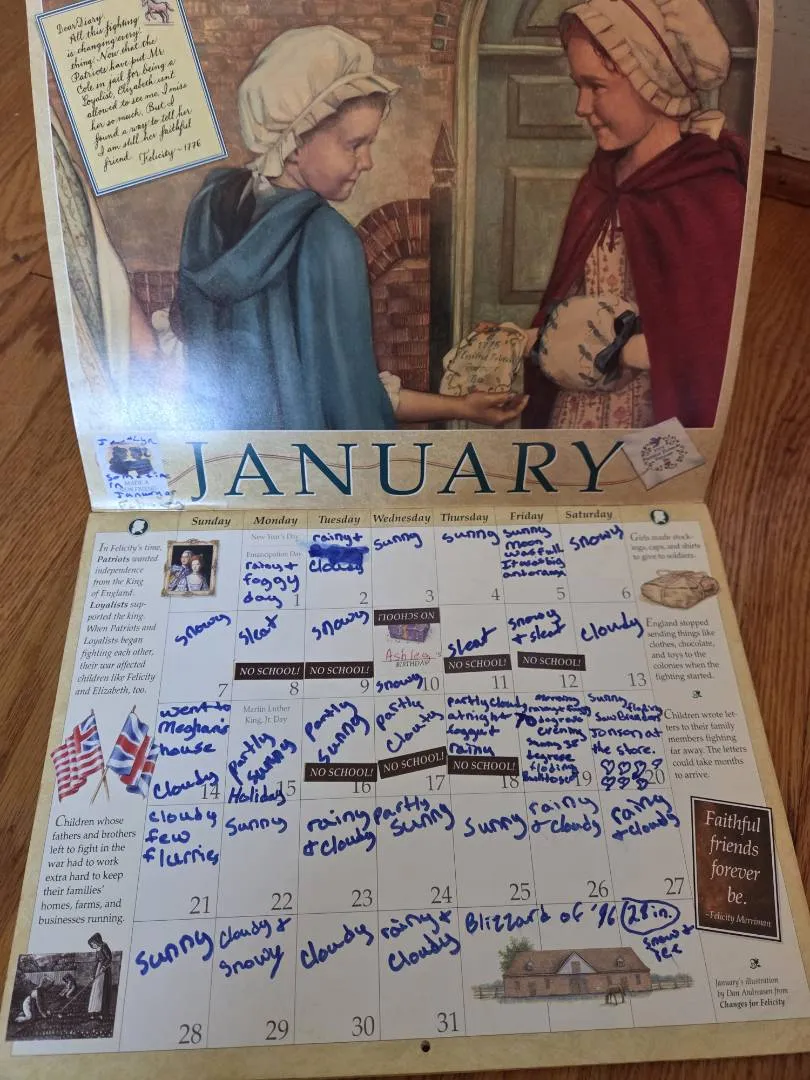 Dear Diary
All this fighting
is changing every-
thing. Now that the
Patriots have put Mr.
Cole in jail for being a
Loyalist, Elizabeth isn't
allowed to see me. I miss
her so much. But I
found a way to tell her
I am still her faithful
friend.
Felicity ~ 1776
1775
JANUARY
MADE A
in
January or
Sunday Monday Tuesday Wednesday Thursday Friday Saturday
In Felicity's time,
Patriots wanted
independence
from the King
of England.
Loyalists sup-
ported the king.
When Patriots and
Loyalists began
fighting each other,
their war affected
children like Felicity
and Elizabeth, too.
New Year's Day
Emancipation Day
rainy +
foggy
day
1
rainy +
cloudy
2
sunny
3
sunny
4
sunny
Moon
was full
It was big
and orange
5
snowy
6
Girls made stock-
ings, caps, and shirts
to give to soldiers.
snowy
7
sleat
NO SCHOOL!
8
snowy
NO SCHOOL!
9
NO SCHOOL!
Ashley's
BIRTHDAY
snowy
10
sleat
NO SCHOOL!
11
snowy
+ sleat
NO SCHOOL!
12
cloudy
13
England stopped
sending things like
clothes, chocolate,
and toys to the
colonies when the
fighting started.
went to
Meghan's
house
cloudy
14
Martin Luther
King, Jr. Day
partly
sunny
Holiday
15
partly
sunny
NO SCHOOL!
16
partly
cloudy
NO SCHOOL!
17
partly cloudy
at night
foggy +
rainy
NO SCHOOL!
18
morning
degrees
evening
degree
floding
19
sunny floding
Saw Brenton
Jonson at
the store.
20
Children wrote let-
ters to their family
members fighting
far away. The letters
could take months
to arrive.
Children whose
fathers and brothers
left to fight in the
war had to work
extra hard to keep
their families'
homes, farms, and
businesses running.
cloudy
few
flurries
21
sunny
22
rainy
+ cloudy
23
partly
sunny
24
sunny
25
rainy
+ cloudy
26
rainy
+ cloudy
27
Faithful
friends
forever
be.
-Felicity Merriman
sunny
28
cloudy +
snowy
29
cloudy
30
rainy +
cloudy
31
Blizzard of '96 28 in.
snow +
ice
January's illustration
by Dan Andreasen from
Changes for Felicity